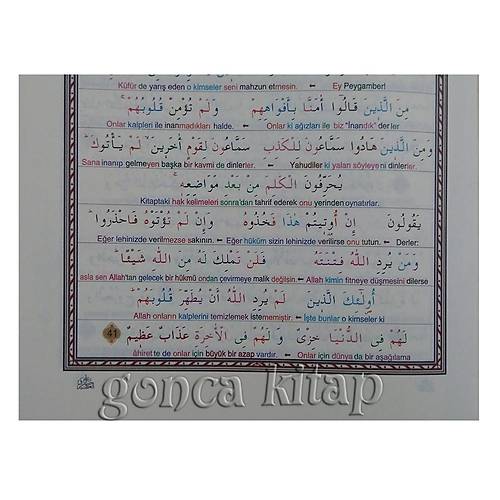 Küfür de yarış eden o kimseler seni mahzun etmesin. ← Ey Peygamber!
مِنَ الَّذِينَ قَالُوا أٰمَنَّا بِأَفْوَاهِهِمْ وَلَمْ تُؤْمِنْ قُلُوبُهُمْ
Onlar kalpleri ile inanmadıkları halde. ← Onlar ki ağızları ile biz "İnandık" derler
وَمِنَ الَّذِينَ هَادُوا سَمَّاعُونَ لِلْكَذِبِ سَمَّاعُونَ لِقَوْمٍ أٰخَرِينَ لَمْ يَأْتُوكَ
Sana inanıp gelmeyen başka bir kavmi de dinlerler. ← Yahudiler ki yalan söyleyeni dinlerler.
يُحَرِّفُونَ الْكَلِمَ مِنْ بَعْدِ مَوَاضِعِهِ
Kitaptaki hak kelimeleri sonra'dan tahrif ederek onu yerinden oynatırlar.
يَقُولُونَ إِنْ أُوتِيتُمْ هٰذَا فَخُذُوهُ وَإِنْ لَمْ تُؤْتَوْهُ فَاحْذَرُوا
Eğer lehinizde verilmezse sakının. ← Eğer hüküm sizin lehinizde verilirse onu tutun. ← Derler:
وَمَنْ يُرِدِ اللّٰهُ فِتْنَتَهُ فَلَنْ تَمْلِكَ لَهُ مِنَ اللّٰهِ شَيْئًا
asla sen Allah'tan gelecek bir hükmü ondan çevirmeye malik değilsin. ← Allah kimin fitneye düşmesini dilerse
أُولٰئِكَ الَّذِينَ لَمْ يُرِدِ اللّٰهُ أَنْ يُطَهِّرَ قُلُوبَهُمْ
Allah onların kalplerini temizlemek istememiştir. ← İşte bunlar o kimseler ki
لَهُمْ فِى الدُّنْيَا خِزْىٌ وَلَهُمْ فِى الْأٰخِرَةِ عَذَابٌ عَظِيمٌ 41
âhiret'te de onlar için büyük bir azap vardır. ← Onlar için dünya da bir aşağılama
gonca kitap